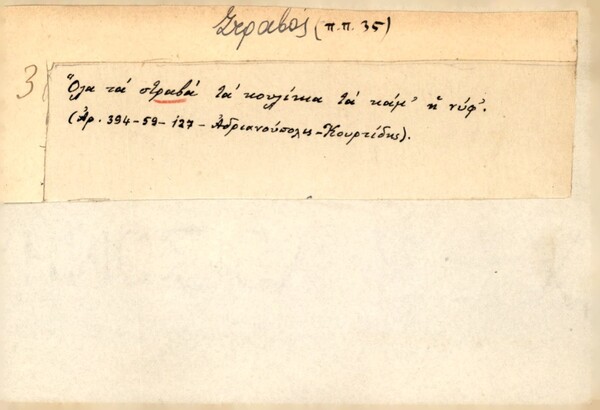 Στραβός (π.π. 35)
3
Ὅλα τά στραβά τά κουλίκια τά κάμ' ἡ νύφ'.
(Ἀρ. 394-59-127-Ἀδριανούπολις-Κουρτίδης).